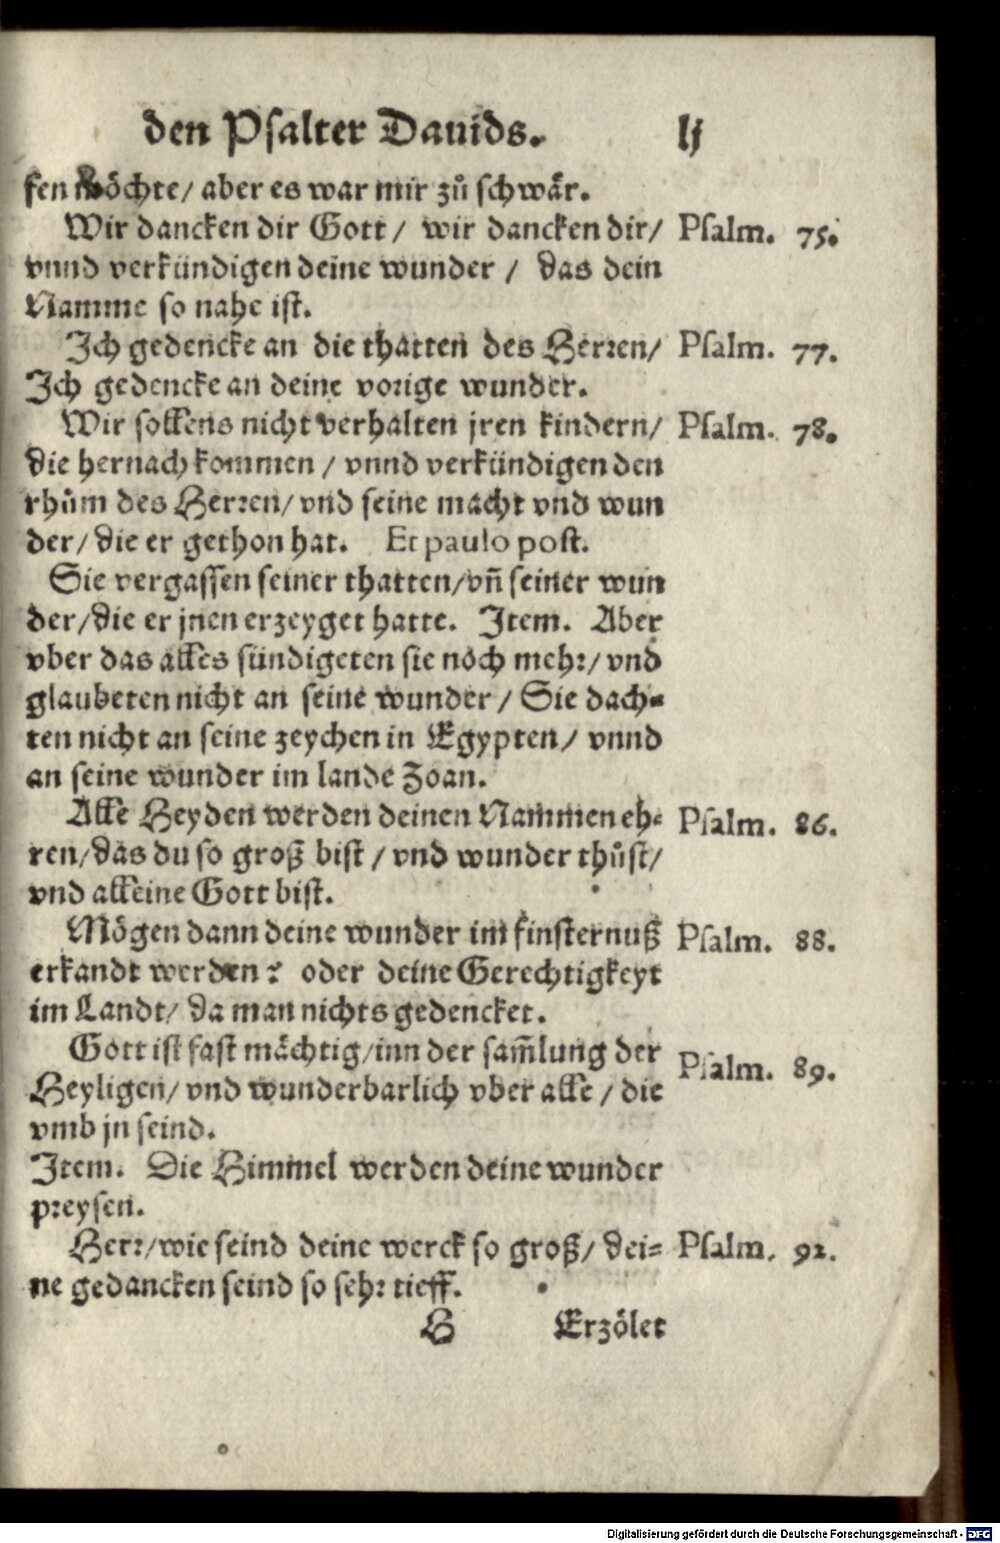 den Psalter Dauids. lj
sen möchte/ aber es war mir zů schwär.
Wir dancken dir Gott/ wir dancken dir/ Psalm. 75.
vnnd verkündigen deine wunder / das dein
Namme so nahe ist.
Ich gedencke an die thatten des Herren/ Psalm. 77.
Ich gedencke an deine vorige wunder.
Wir sollens nicht verhalten jren kindern/ Psalm. 78.
die hernach kommen / vnnd verkündigen den
rhům des Herren/ vnd seine macht vnd wun
der/ die er gethon hat. Et paulo post.
Sie vergassen seiner thatten/vñ seiner wun
der/die er jnen erzeyget hatte. Item. Aber
vber das alles sündigeten sie noch mehr/ vnd
glaubeten nicht an seine wunder / Sie dach-
ten nicht an seine zeychen in Egypten/ vnnd
an seine wunder im lande Zoan.
Alle Heyden werden deinen Nammen eh- Psalm. 86.
ren/das du so groß bist / vnd wunder thůst/
vnd alleine Gott bist.
Mögen dann deine wunder im finsternuß Psalm. 88.
erkandt werden? oder deine Gerechtigkeyt
im Landt/ da man nichts gedencket.
Gott ist fast mächtig/inn der sam̃lung der Psalm. 89.
Heyligen/ vnd wunderbarlich vber alle / die
vmb jn seind.
Item. Die Himmel werden deine wunder
preysen.
Herr/wie seind deine werck so groß/ dei- Psalm. 92.
ne gedancken seind so sehr tieff.
H Erzölet
Digitalisierung gefördert durch die Deutsche Forschungsgemeinschaft - DFG